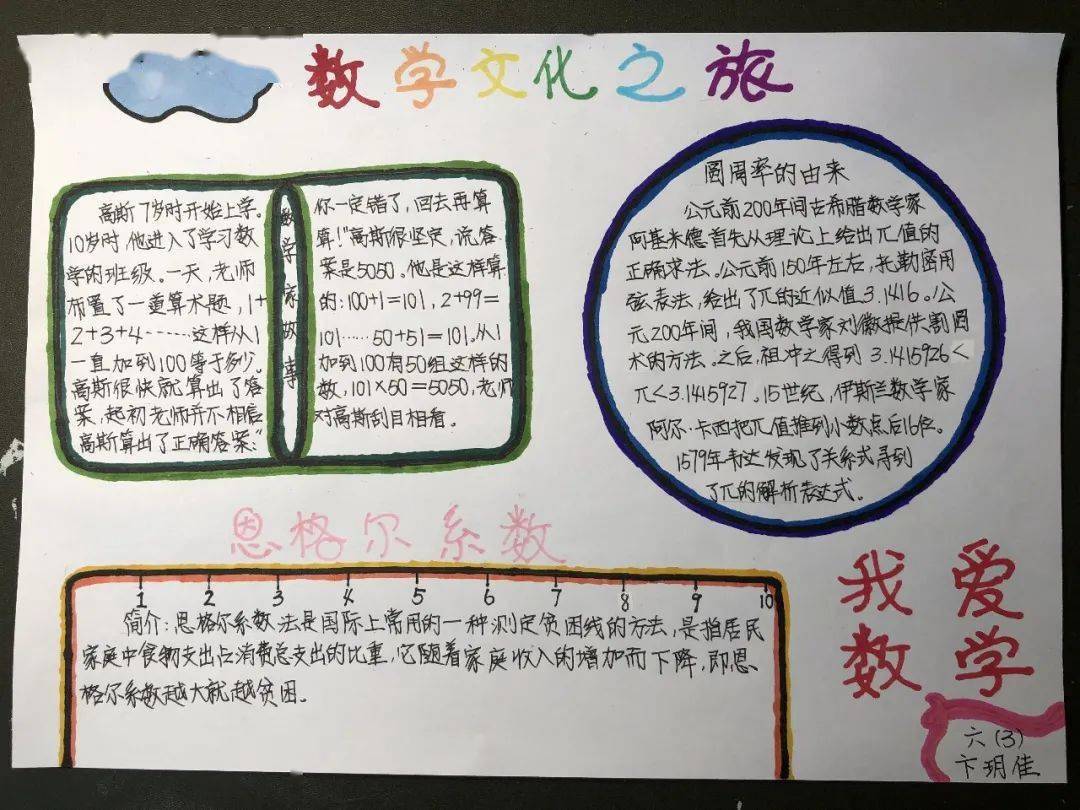 数学文化之旅
高斯7岁时开始上学。
10岁时,他进入了学习数
学的班级。一天,老师
布置了一重算术题,1+
2+3+4……这样从1
一直加到100等于多少。
高斯很快就算出了答
案,起初老师并不相信
高斯算出了正确答案:“
数学家故事
你一定错了,回去再算
算!”高斯很坚定,说答
案是5050。他是这样算
的:100+1=101,2+99=
101……50+51=101。从1
加到100有50组这样的
数,101×50=5050,老师
对高斯刮目相看。
圆周率的由来
公元前200年间古希腊数学家
阿基米德首先从理论上给出π值的
正确求法。公元前150年左右,托勒密用
弦表法,给出了π的近似值3.1416。公
元200年间,我国数学家刘徽提供割圆
术的方法。之后,祖冲之得到3.1415926<
π<3.1415927。15世纪,伊斯兰数学家
阿尔·卡西把π值推到小数点后16位。
1579年韦达发现了关系式寻到
了π的解析表达式。
恩格尔系数
1 2 3 4 5 6 7 8 9 10
简介:恩格尔系数法是国际上常用的一种测定贫困线的方法,是指居民
家庭中食物支出占消费总支出的比重,它随着家庭收入的增加而下降,即恩
格尔系数越大就越贫困。
我爱
数学
六(3)
卞玥佳